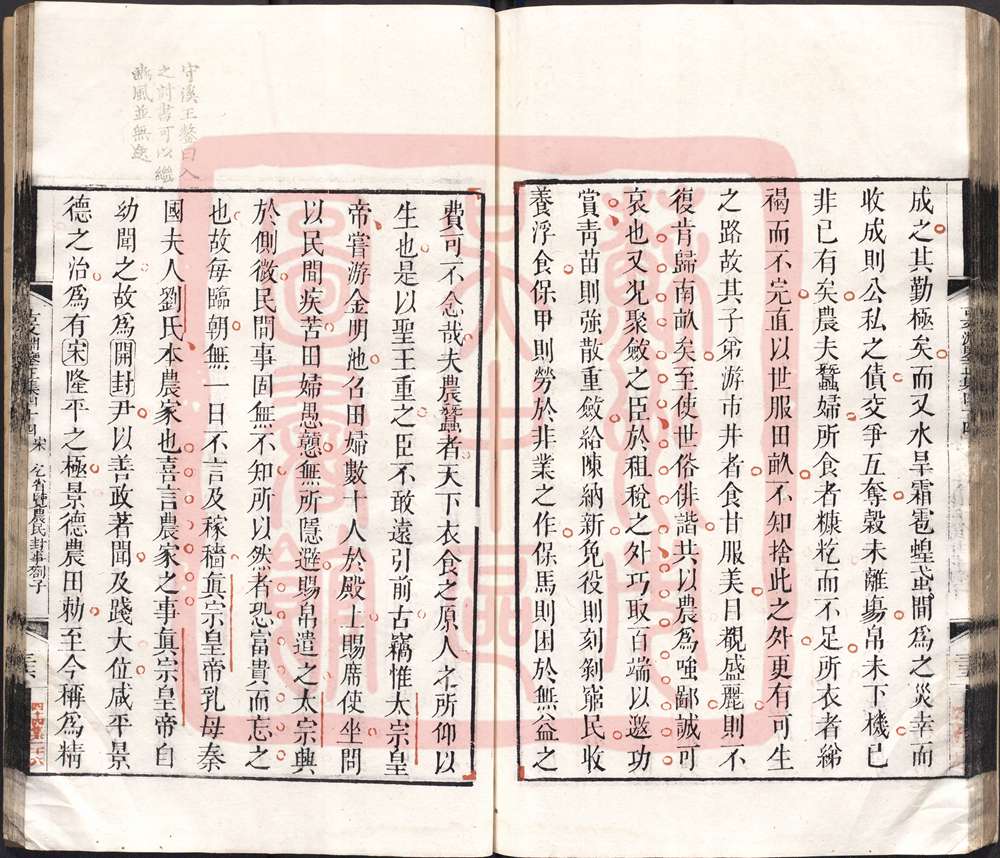 成之其勤極矣而又水旱霜雹蝗蜮間爲之災幸而
收成則公私之債交爭互奪穀未離場帛未下機已
非已有矣農夫蠶婦所食者糠籺而不足所衣者綈
褐而不完直以世服田畝不知捨此之外更有可生
之路故其子弟游市井者食甘服美目覩盛麗則不
復肯歸南畝矣至使世俗俳諧共以農爲嗤鄙誠可
哀也又况聚斂之臣於租稅之外巧取百端以邀功
賞青苗則強散重斂給陳納新免役則刻剝窮民收
養浮食保甲則勞於非業之作保馬則困於無益之
費可不念哉夫農蠶者天下衣食之原人之所仰以
生也是以聖王重之臣不敢遠引前古竊惟太宗皇
帝嘗游金明池召田婦數十人於殿上賜席使坐問
以民間疾苦田婦愚戇無所隱避賜帛遣之太宗興
於側微民間事固無不知所以然者恐富貴而忘之
也故每臨朝無一日不言及稼穡真宗皇帝乳母秦
國夫人劉氏本農家也喜言農家之事真宗皇帝自
幼聞之故爲開封尹以善政著聞及踐大位咸平景
德之治爲有宋隆平之極景德農田勅至今稱爲精
宋 乞省覽農民封事劄子
守溪王鏊曰入
之討書可以繼
豳風並無逸